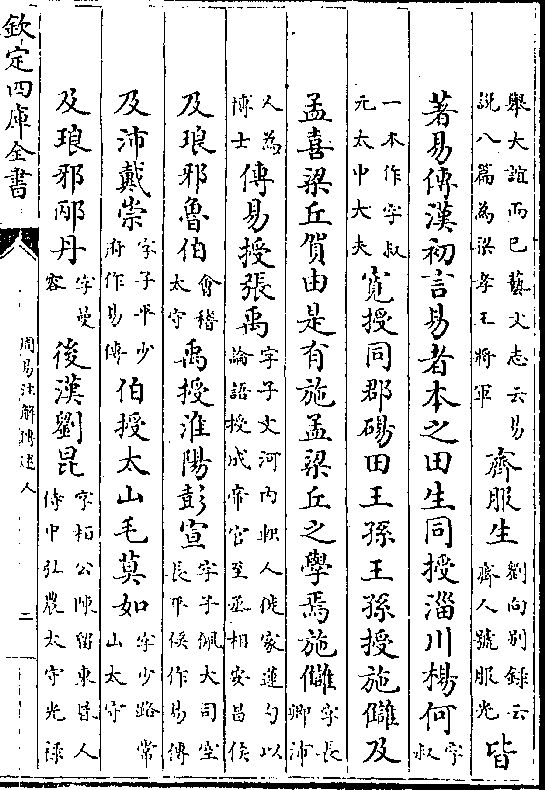 舉大誼而已藝文志云易説八篇為梁孝王將軍齊服生劉向别録云齊人號服光皆
著易傳漢初言易者本之田生同授淄川楊何字叔
一本作字叔元太中大夫寛授同郡碭田王孫王孫授施讎及
孟喜梁丘賀由是有施孟梁丘之學焉施讎字長卿沛
人為博士傳易授張禹字子文河内軹人徙家蓮勺以論語授成帝官至丞相安昌侯
及琅邪魯伯會稽太守禹授淮陽彭宣字子佩大司空長平侯作易傳
及沛戴崇字子平少府作易傳伯授太山毛莫如字少路常山太守
及琅邪邴丹字曼容後漢劉昆字桓公陳留東昏人侍中弘農太守光禄
欽定四庫全書
周易注解傳述人
二